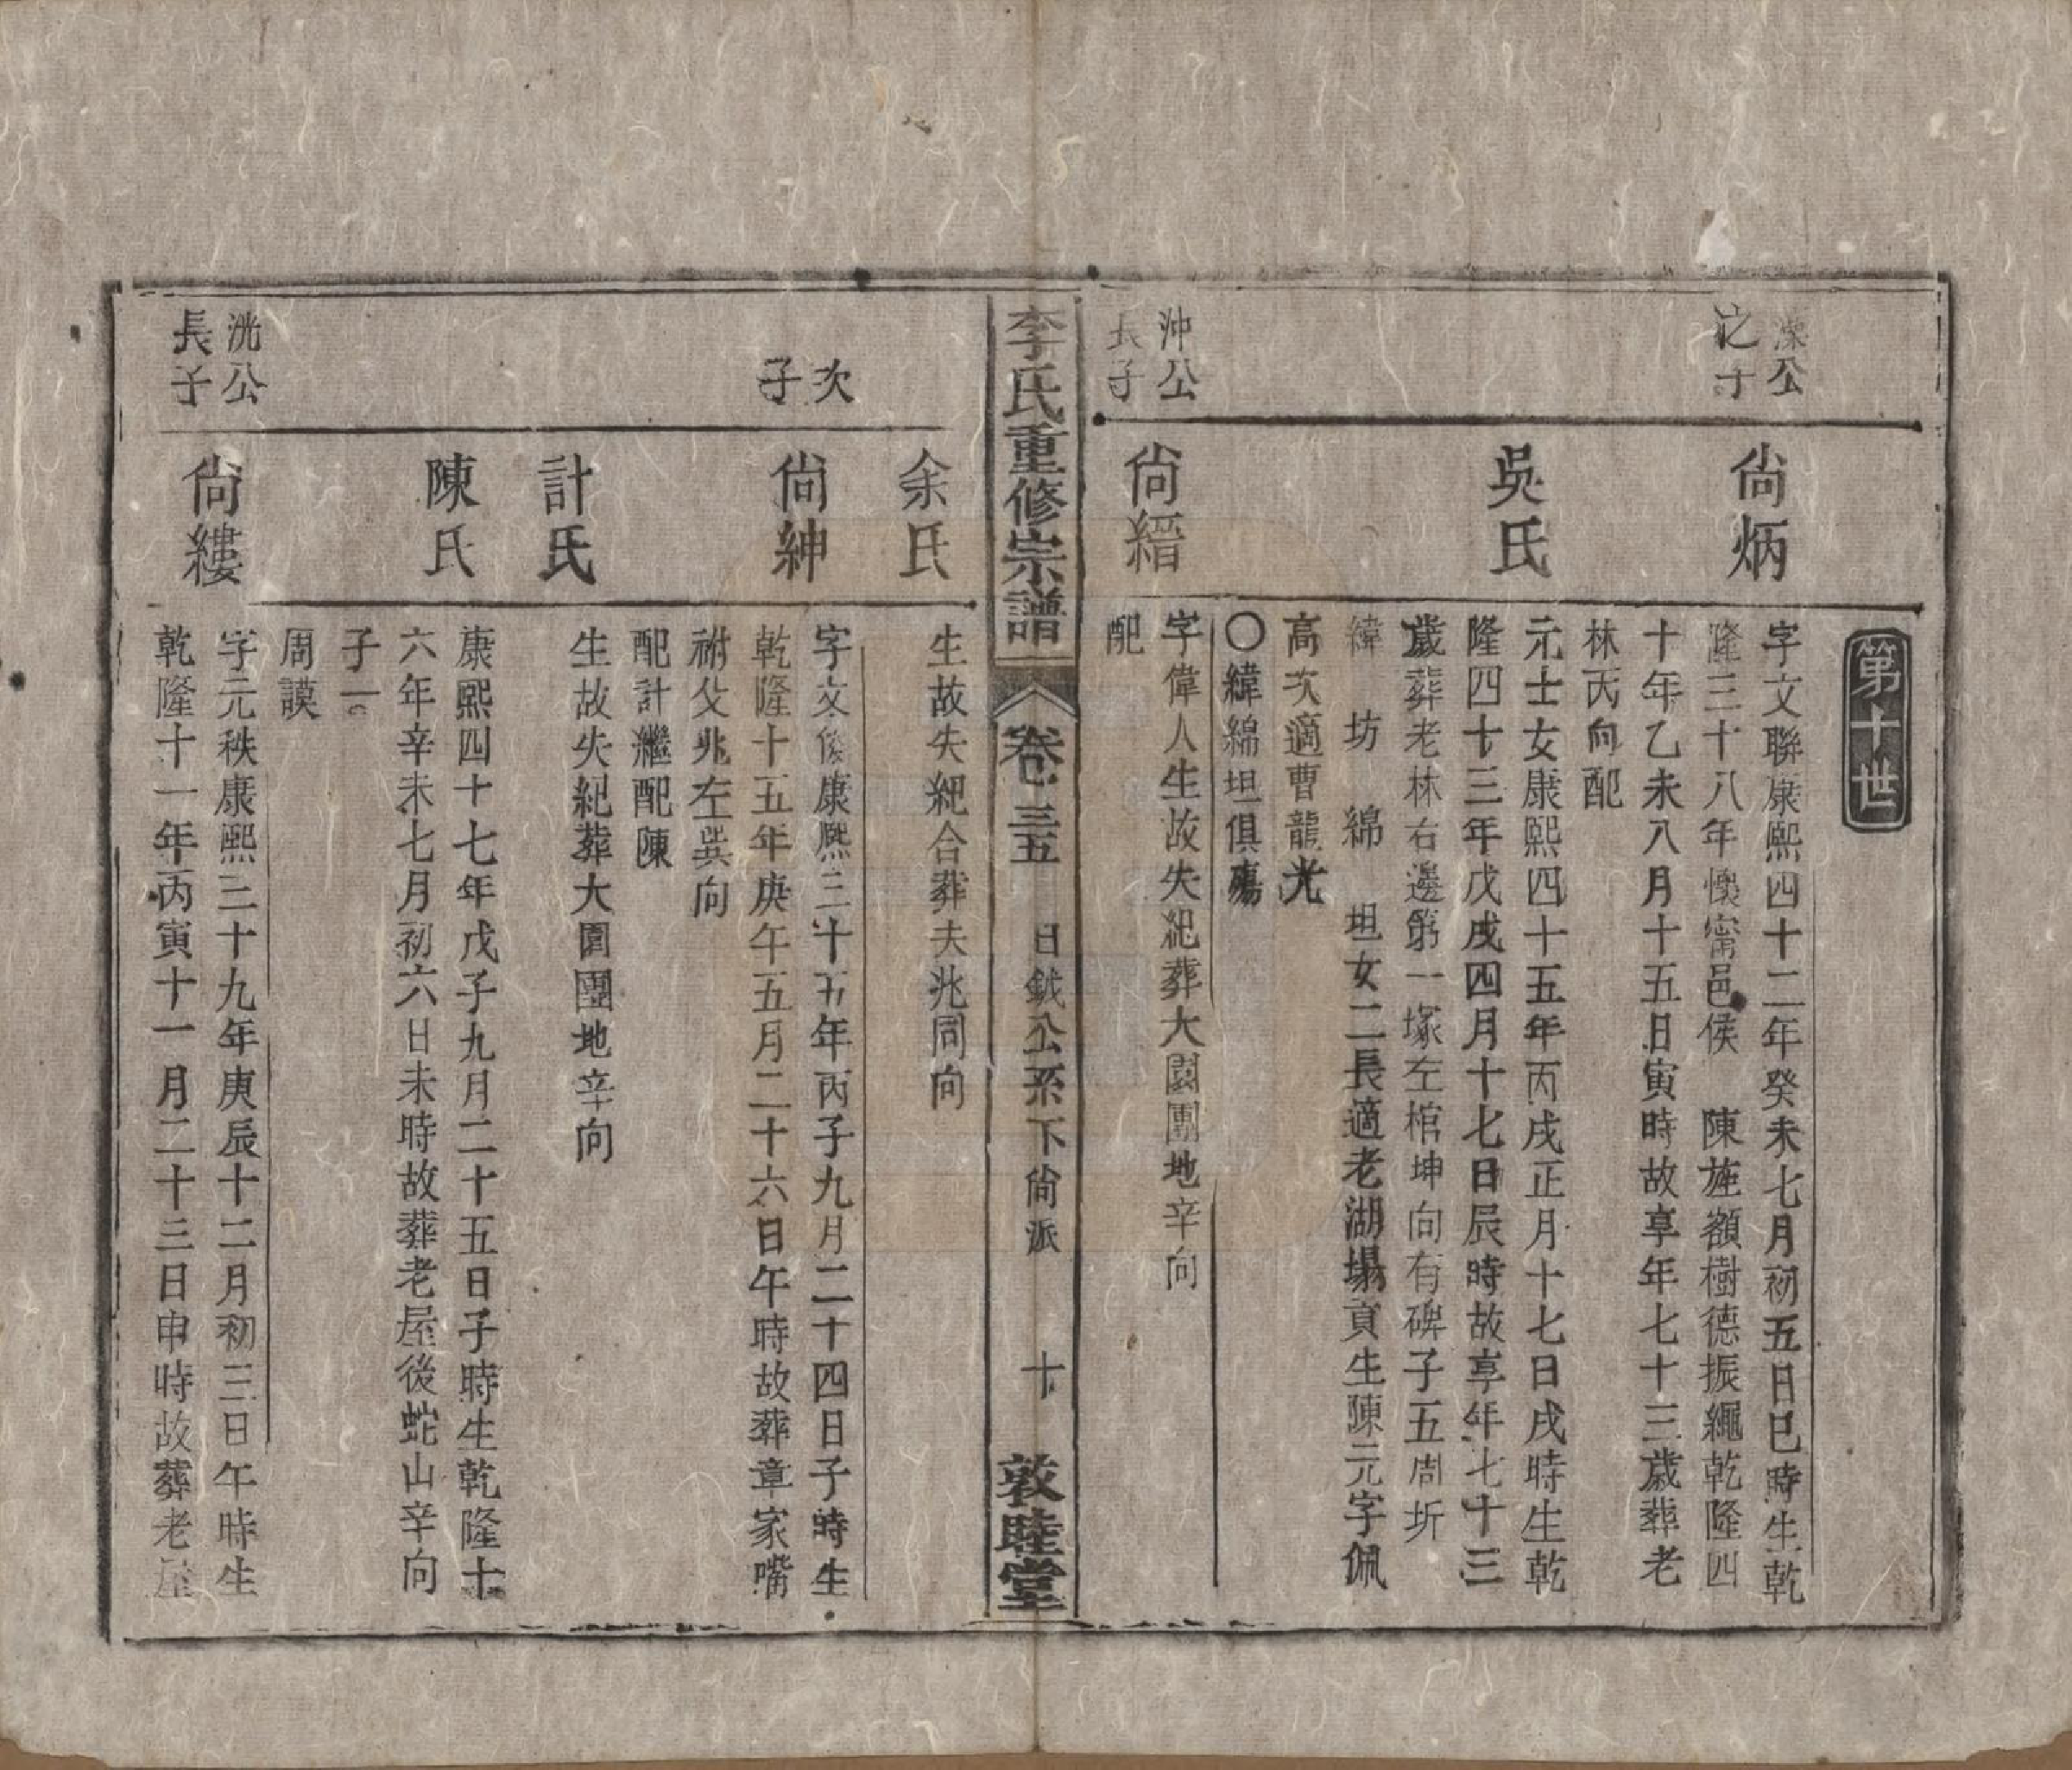 第十世
公
之子
尙炳
字文聯康熙四十二年癸未七月初五日巳時生乾
隆三十八年懷甯邑侯　陳旌額樹德振繩乾隆四
十年乙未八月十五日寅時故享年七十三歲葬老
林丙向配
吳氏
元士女康熙四十五年丙戌正月十七日戌時生乾
隆四十三年戊戌四月十七日辰時故享年七十三
歲葬老林右邊第一塚左棺坤向有碑子五周圻
緯　坊　綿　坦女二長適老湖場貢生陳元字佩
高次適曹龍光
〇緯綿坦俱殤
沖公
長子
尙縉
字偉人生故失紀葬大園團地辛向
配
李氏重修宗譜
卷三五
日鉞公系下尙派
十
敦睦堂
余氏
生故失紀合葬夫兆同向
次
子
尙紳
字文俊康熙三十五年丙子九月二十四日子時生
乾隆十五年庚午五月二十六日午時故葬章家嘴
祔父兆左巽向
配計繼配陳
計氏
生故失紀葬大園團地辛向
陳氏
康熙四十七年戊子九月二十五日子時生乾隆十
六年辛未七月初六日未時故葬老屋後蛇山辛向
子一
周謨
洸公
長子
尙縷
字元秩康熙三十九年庚辰十二月初三日午時生
乾隆十一年丙寅十一月二十三日申時故葬老屋